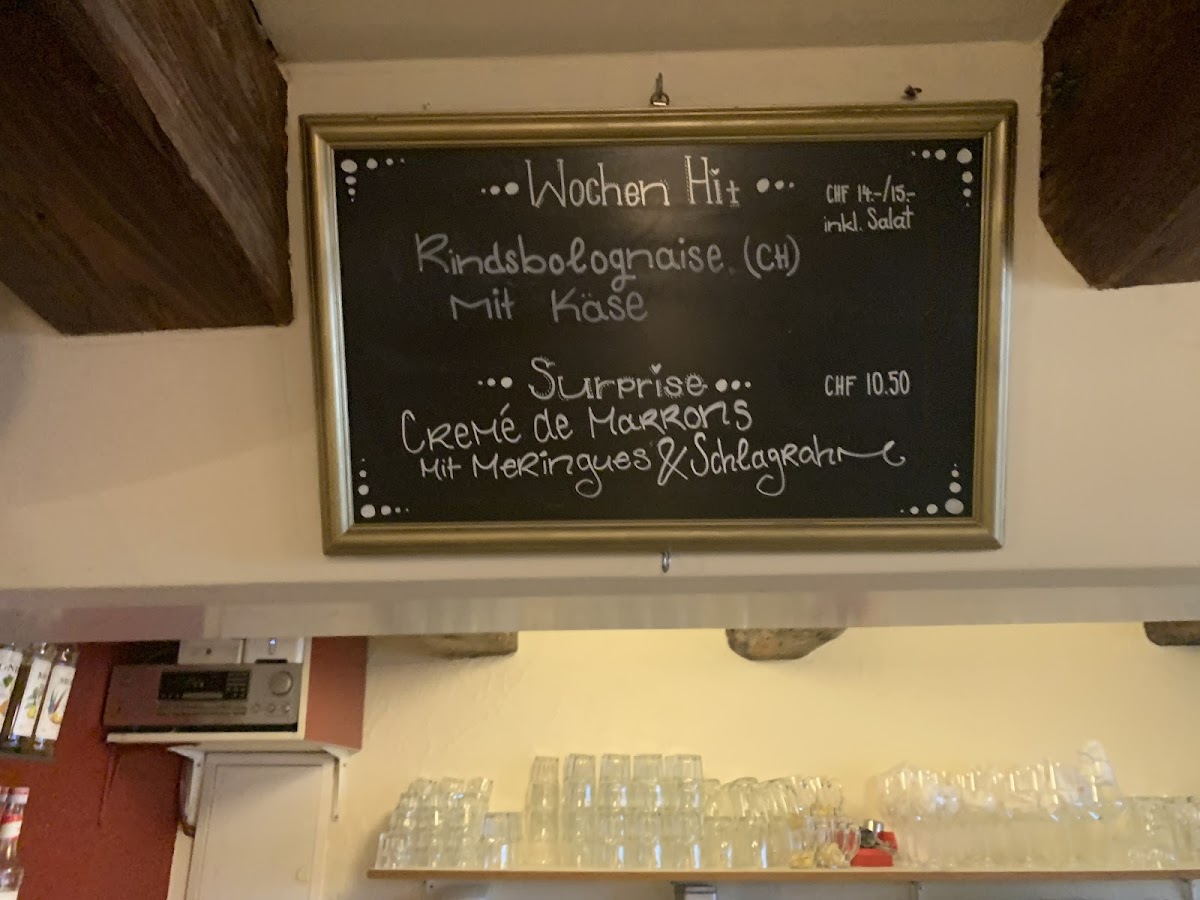 Wochen Hit
CHF 14.-/15.-
inkl. Salat
Rindsbolognaise. (CH)
mit Käse
Surprise
CHF 10.50
Cremé de Marrons
mit Meringues & Schlagrahm